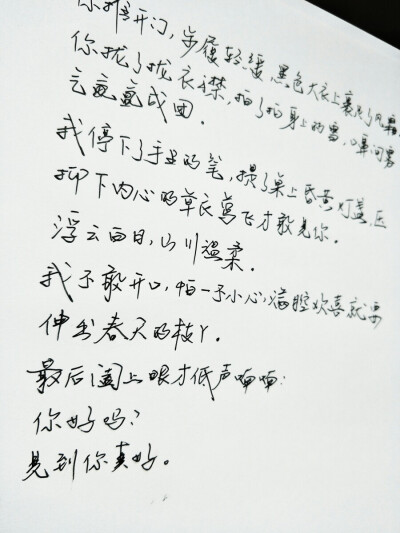 你推开门，步履轻缓，黑色大衣上裹尽了风霜
你拢了拢衣襟，拍了拍身上的雪，呼闻雾
气氤氲成团。
我停下了手里的笔，提了桌上昏黄灯盏，压
抑下内心的草长莺飞才敢见你。
浮云白日，山川温柔。
我不敢开口，怕一不小心，满腔欢喜就要
伸出春天的枝丫。
最后阖上眼才低声喃喃：
你好吗？
见到你真好。